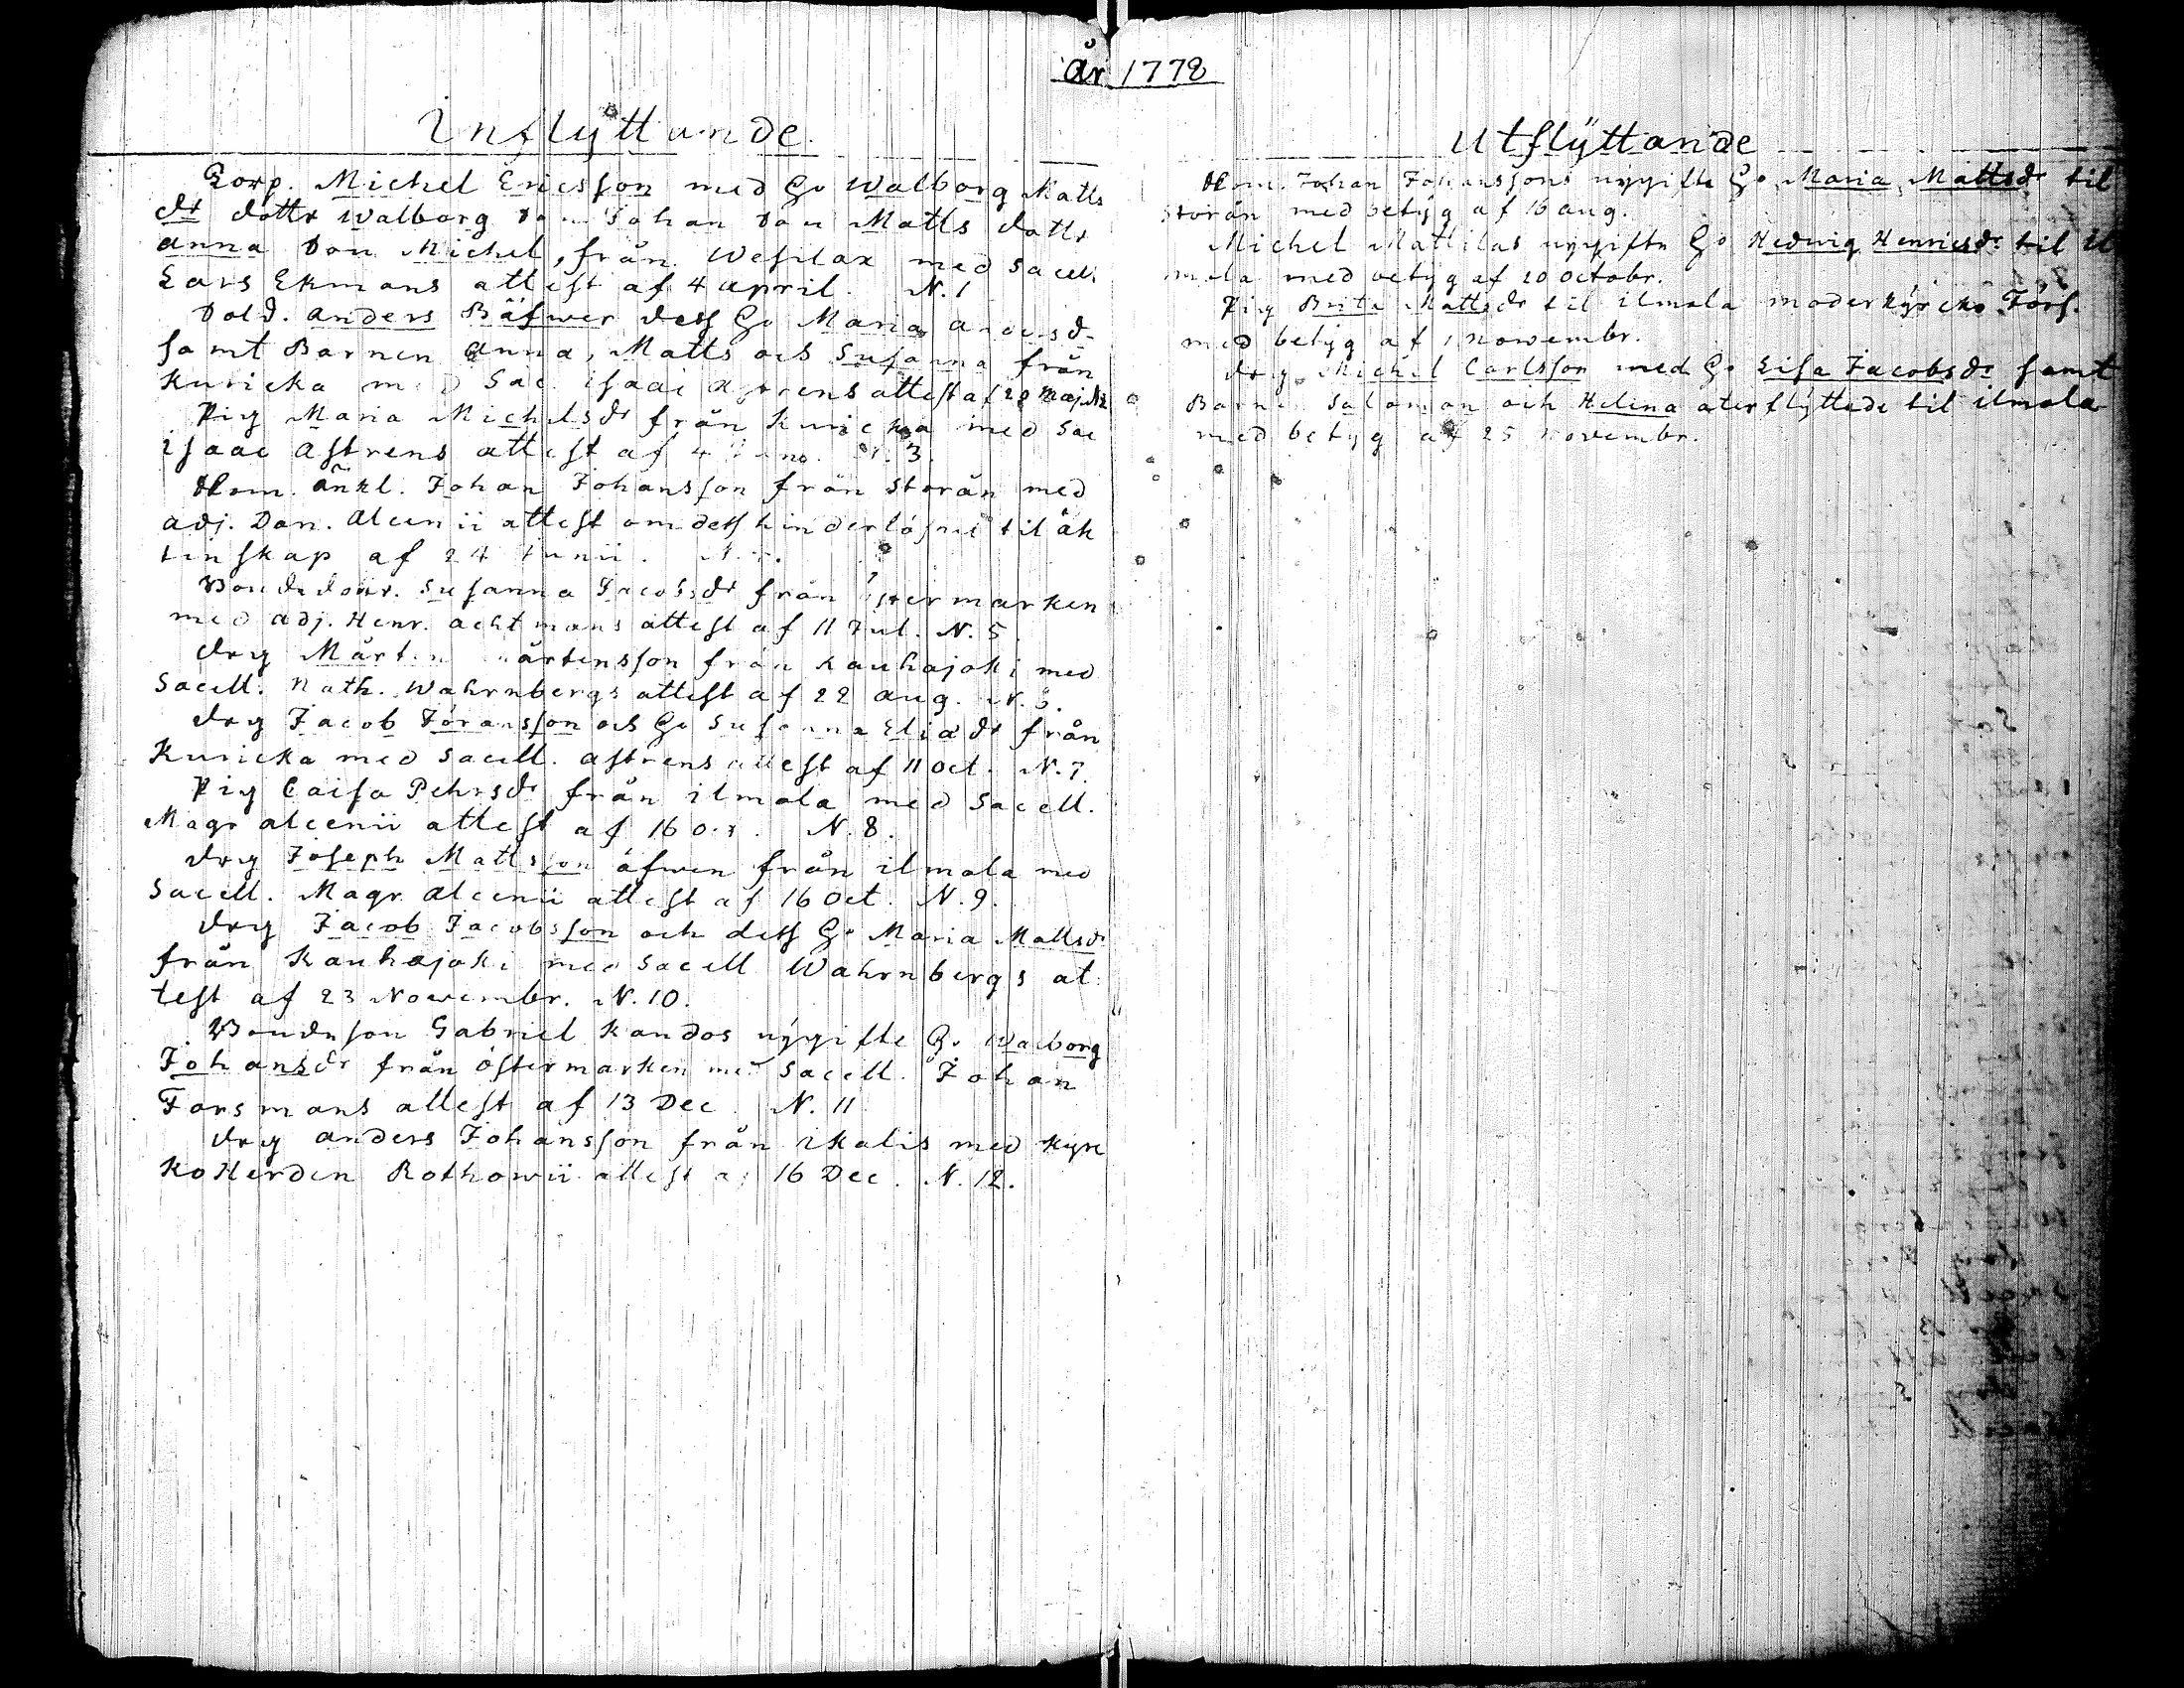 år 1778
Inflyttande
Corp. Michel Ericsson med Hu Walborg Matts
dr dottr Walborg Son Johan Son Matts dottr
anna Son Michel, från Wesilax med Sacell.
Lars Ekmans attest af 4 april. N. 1
Sold. anders Bäfwer dess Hu Maria andersdr
samt Barnen anna, Matts och Susanna från
Kuricka med Sac. isaac astrens attest af 29 Maj N2
Pig Maria Michelsdr från Kuricka med Sac
isaac astrens attest af 4 N. 3.
änkl. Johan Johansson från Storån med
adj. Dan. alcenii attest om dess hinderlöshet til äk
tenskap af 24 Junii.
Bondedottr. Susanna Jacobsdr från östermarken
med adj. Henr. achtmans attest af 11 Jul. N. 5.
drg Mårten Mårtensson från Kauhajoki med
Sacell. Nath. Wahrnbergs attest af 22 aug.
drg Jacob Jöransson och Hu Susanna Eliædr från
Kuricka med Sacell. astrens attest af 11 Oct. N. 7.
Pig Caisa Pehrsdr från ilmola med Sacell.
Magr alcenii attest af 16 Oct. N. 8.
drg Joseph Mattsson äfwen från ilmola med
Sacell. Magr alcenii attest af 16 Oct. N. 9.
drg Jacob Jacobsson och dess Hu Maria Mattsdr
från Kauhajoki med Sacell Wahrnbergs at
test af 23 Novembr. N. 10.
Bondeson Gabriel Kandos nygifte Hu Walborg
Johansdr från östermarken med Sacell. Johan
Forsmans attest af 13 Dec. N. 11
drg anders Johansson från ikalis med Kyrc
koHerden Rothowii attest af 16 Dec. N. 12.
Utflyttande
Johan Johanssons nygifte Hu Maria Mattsdr til
Storån med betyg af 16 aug.
Michel Mattilas nygifte Hu Hedwig Henricsdr til il
mola med betyg af 10 Octobr.
Pig Brita Mattsdr til ilmola moderkyrcko Förs.
med betyg af 1 novembr.
drg Michel Carlsson med Hu Lisa Jacobsdr samt
Barnen Salomon och Helena återflyttade til ilmola
med betyg af 25 novembr.